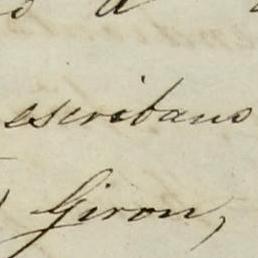 a
escribano
Giron,